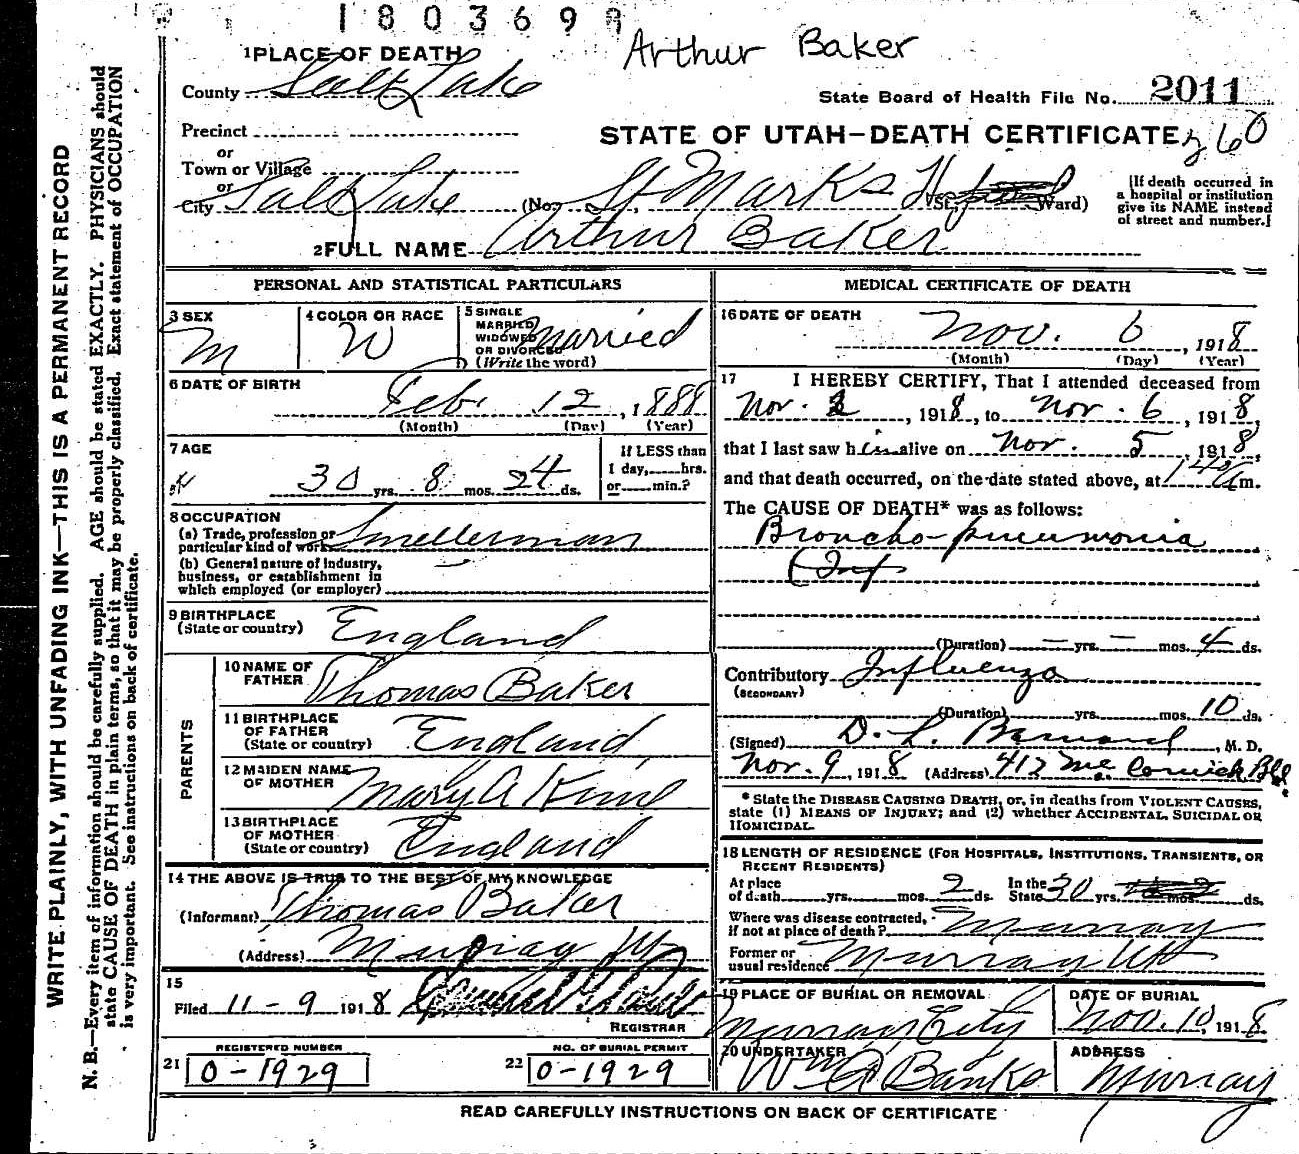 180369
Arthur Baker
1 PLACE OF DEATH
County Salt Lake
State Board of Health File No. 2011
Precinct
STATE OF UTAH—DEATH CERTIFICATE 260
or
Town or Village
or
City Salt Lake (No. St Marks H St., Ward)
[If death occurred in a hospital or institution give its NAME instead of street and number.]
2 FULL NAME Arthur Baker
PERSONAL AND STATISTICAL PARTICULARS
3 SEX M
4 COLOR OR RACE W
5 SINGLE MARRIED WIDOWED OR DIVORCED (Write the word) Married
6 DATE OF BIRTH Feb. 12, 1888
(Month) (Day) (Year)
7 AGE 30 yrs. 8 mos. 24 ds.
If LESS than 1 day, hrs. or min.?
8 OCCUPATION
(a) Trade, profession or particular kind of work Smelterman
(b) General nature of industry, business, or establishment in which employed (or employer)
9 BIRTHPLACE
(State or country) England
PARENTS
10 NAME OF FATHER Thomas Baker
11 BIRTHPLACE OF FATHER (State or country) England
12 MAIDEN NAME OF MOTHER Mary A
13 BIRTHPLACE OF MOTHER (State or country) England
14 THE ABOVE IS TRUE TO THE BEST OF MY KNOWLEDGE
(Informant) Thomas Baker
(Address) Murray Ut
15
Filed 11-9 1918
REGISTRAR
REGISTERED NUMBER
21 0-1929
NO. OF BURIAL PERMIT
22 0-1929
MEDICAL CERTIFICATE OF DEATH
16 DATE OF DEATH
Nov. 6, 1918
(Month) (Day) (Year)
17 I HEREBY CERTIFY, That I attended deceased from
Nov. , 1918, to Nov. 6, 1918,
that I last saw him alive on Nov. 5, 1918,
and that death occurred, on the date stated above, at m.
The CAUSE OF DEATH* was as follows:
Broncho-pneumonia
(Inf
(Duration) — yrs. — mos. 4 ds.
Contributory Influenza
(SECONDARY)
(Duration) yrs. mos. 10 ds.
(Signed) D. L. Barnard, M. D.
Nov. 9, 1918 (Address) 417 Mc Cornick Bld
* State the DISEASE CAUSING DEATH, or, in deaths from VIOLENT CAUSES,
state (1) MEANS OF INJURY; and (2) whether ACCIDENTAL, SUICIDAL OR
HOMICIDAL.
18 LENGTH OF RESIDENCE (FOR HOSPITALS, INSTITUTIONS, TRANSIENTS, OR
RECENT RESIDENTS)
At place of death yrs. mos. 2 ds. In the State 30 yrs. mos. ds.
Where was disease contracted, if not at place of death? Murray
Former or usual residence Murray Ut
19 PLACE OF BURIAL OR REMOVAL
Murray City
DATE OF BURIAL
Nov. 10, 1918
20 UNDERTAKER
Wm A Banks
ADDRESS
Murray
READ CAREFULLY INSTRUCTIONS ON BACK OF CERTIFICATE
WRITE PLAINLY, WITH UNFADING INK—THIS IS A PERMANENT RECORD
N. B.—Every item of information should be carefully supplied. AGE should be stated EXACTLY. PHYSICIANS should
state CAUSE OF DEATH in plain terms, so that it may be properly classified. Exact statement of OCCUPATION
is very important. See instructions on back of certificate.